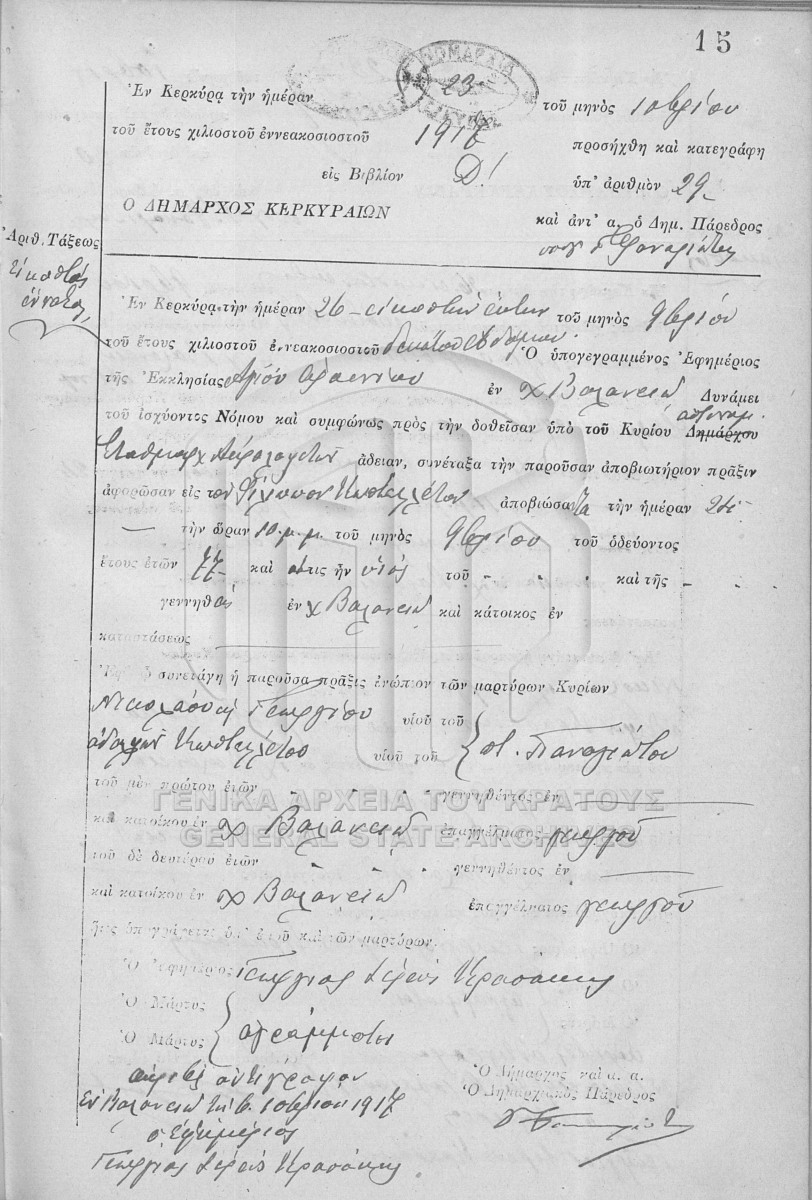 15
ΝΟΜΑΡΧΙΑ
Ἐν Κερκύρᾳ τὴν ἡμέραν 23 τοῦ μηνὸς 10βρίου
τοῦ ἔτους χιλιοστοῦ ἐννεακοσιοστοῦ 1917 προσήχθη καὶ κατεγράφη
εἰς Βιβλίον Δ! ὑπ' ἀριθμὸν 29
Ο ΔΗΜΑΡΧΟΣ ΚΕΡΚΥΡΑΙΩΝ καὶ ἀντ' α. ὁ Δημ. Πάρεδρος
Ἀριθ. Τάξεως
εἰκοστὸς
ἔννατος
Ἐν Κερκύρᾳ τὴν ἡμέραν 26 εἰκοστὴν ἕκτην τοῦ μηνὸς 9βρίου
τοῦ ἔτους χιλιοστοῦ ἐννεακοσιοστοῦ δεκάτου ἑβδόμου Ὁ ὑπογεγραμμένος Ἐφημέριος
τῆς Ἐκκλησίας Ἁγίου ἐν χ Βαλανειῶ Δυνάμει
τοῦ ἰσχύοντος Νόμου καὶ συμφώνως πρὸς τὴν δοθεῖσαν ὑπὸ τοῦ Κυρίου Δημάρχου ἀστυνομ.
Σταθμάρχ ἄδειαν, συνέταξα τὴν παροῦσαν ἀποβιωτήριον πρᾶξιν
ἀφορῶσαν εἰς τὸν Φίλιππον ἀποβιώσαντα τὴν ἡμέραν
τὴν ὥραν 10 μ.μ. τοῦ μηνὸς 9βρίου τοῦ ὁδεύοντος
ἔτους ἐτῶν 77 καὶ ὅστις ἦν υἱὸς τοῦ " " " καὶ τῆς " "
γεννηθεὶς ἐν χ Βαλανειῶ καὶ κάτοικος ἐν
καταστάσεως
Ἐφ' ᾧ συνετάγη ἡ παροῦσα πρᾶξις ἐνώπιον τῶν μαρτύρων Κυρίων
Νικολάου κ Γεωργίου υἱοῦ τοῦ
ἀδελφῶν υἱοῦ τοῦ π. Παναγιώτου
τοῦ μὲν πρώτου ἐτῶν " " " " γεννηθέντος ἐν
καὶ κατοίκου ἐν χ Βαλανειῶ ἐπαγγέλματος γεωργοῦ
τοῦ δὲ δευτέρου ἐτῶν " " " γεννηθέντος ἐν
καὶ κατοίκου ἐν χ Βαλανειῶ ἐπαγγέλματος γεωργοῦ
ἥτις ὑπογράφεται ὑπ' ἐμοῦ καὶ τῶν μαρτύρων.
Ὁ Ἐφημέριος Γεώργιος Ἱερεὺς Κρασάκης
Ὁ Μάρτυς
Ὁ Μάρτυς ἀγράμματοι
ἀκριβὲς ἀντίγραφον
Ἐν Βαλανειῶ τῇ 6 10βρίου 1917
ὁ Ἐφημέριος
Γεώργιος Ἱερεὺς Κρασάκης
Ὁ Δήμαρχος καὶ α. α.
Ὁ Δημαρχιακὸς Πάρεδρος
ΓΕΝΙΚΑ ΑΡΧΕΙΑ ΤΟΥ ΚΡΑΤΟΥΣ
GENERAL STATE ARCHIVES